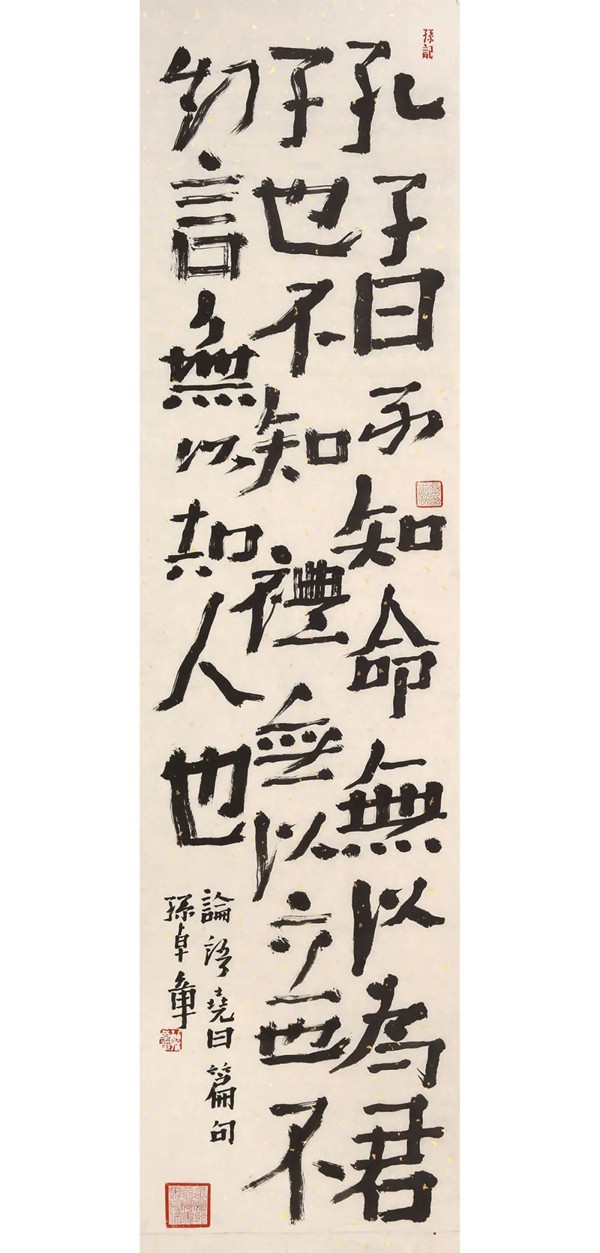 孔子曰不知命無以為君
子也不知禮無以立也不
知言無以知人也
論語堯曰篇句
孫卓章
孫記